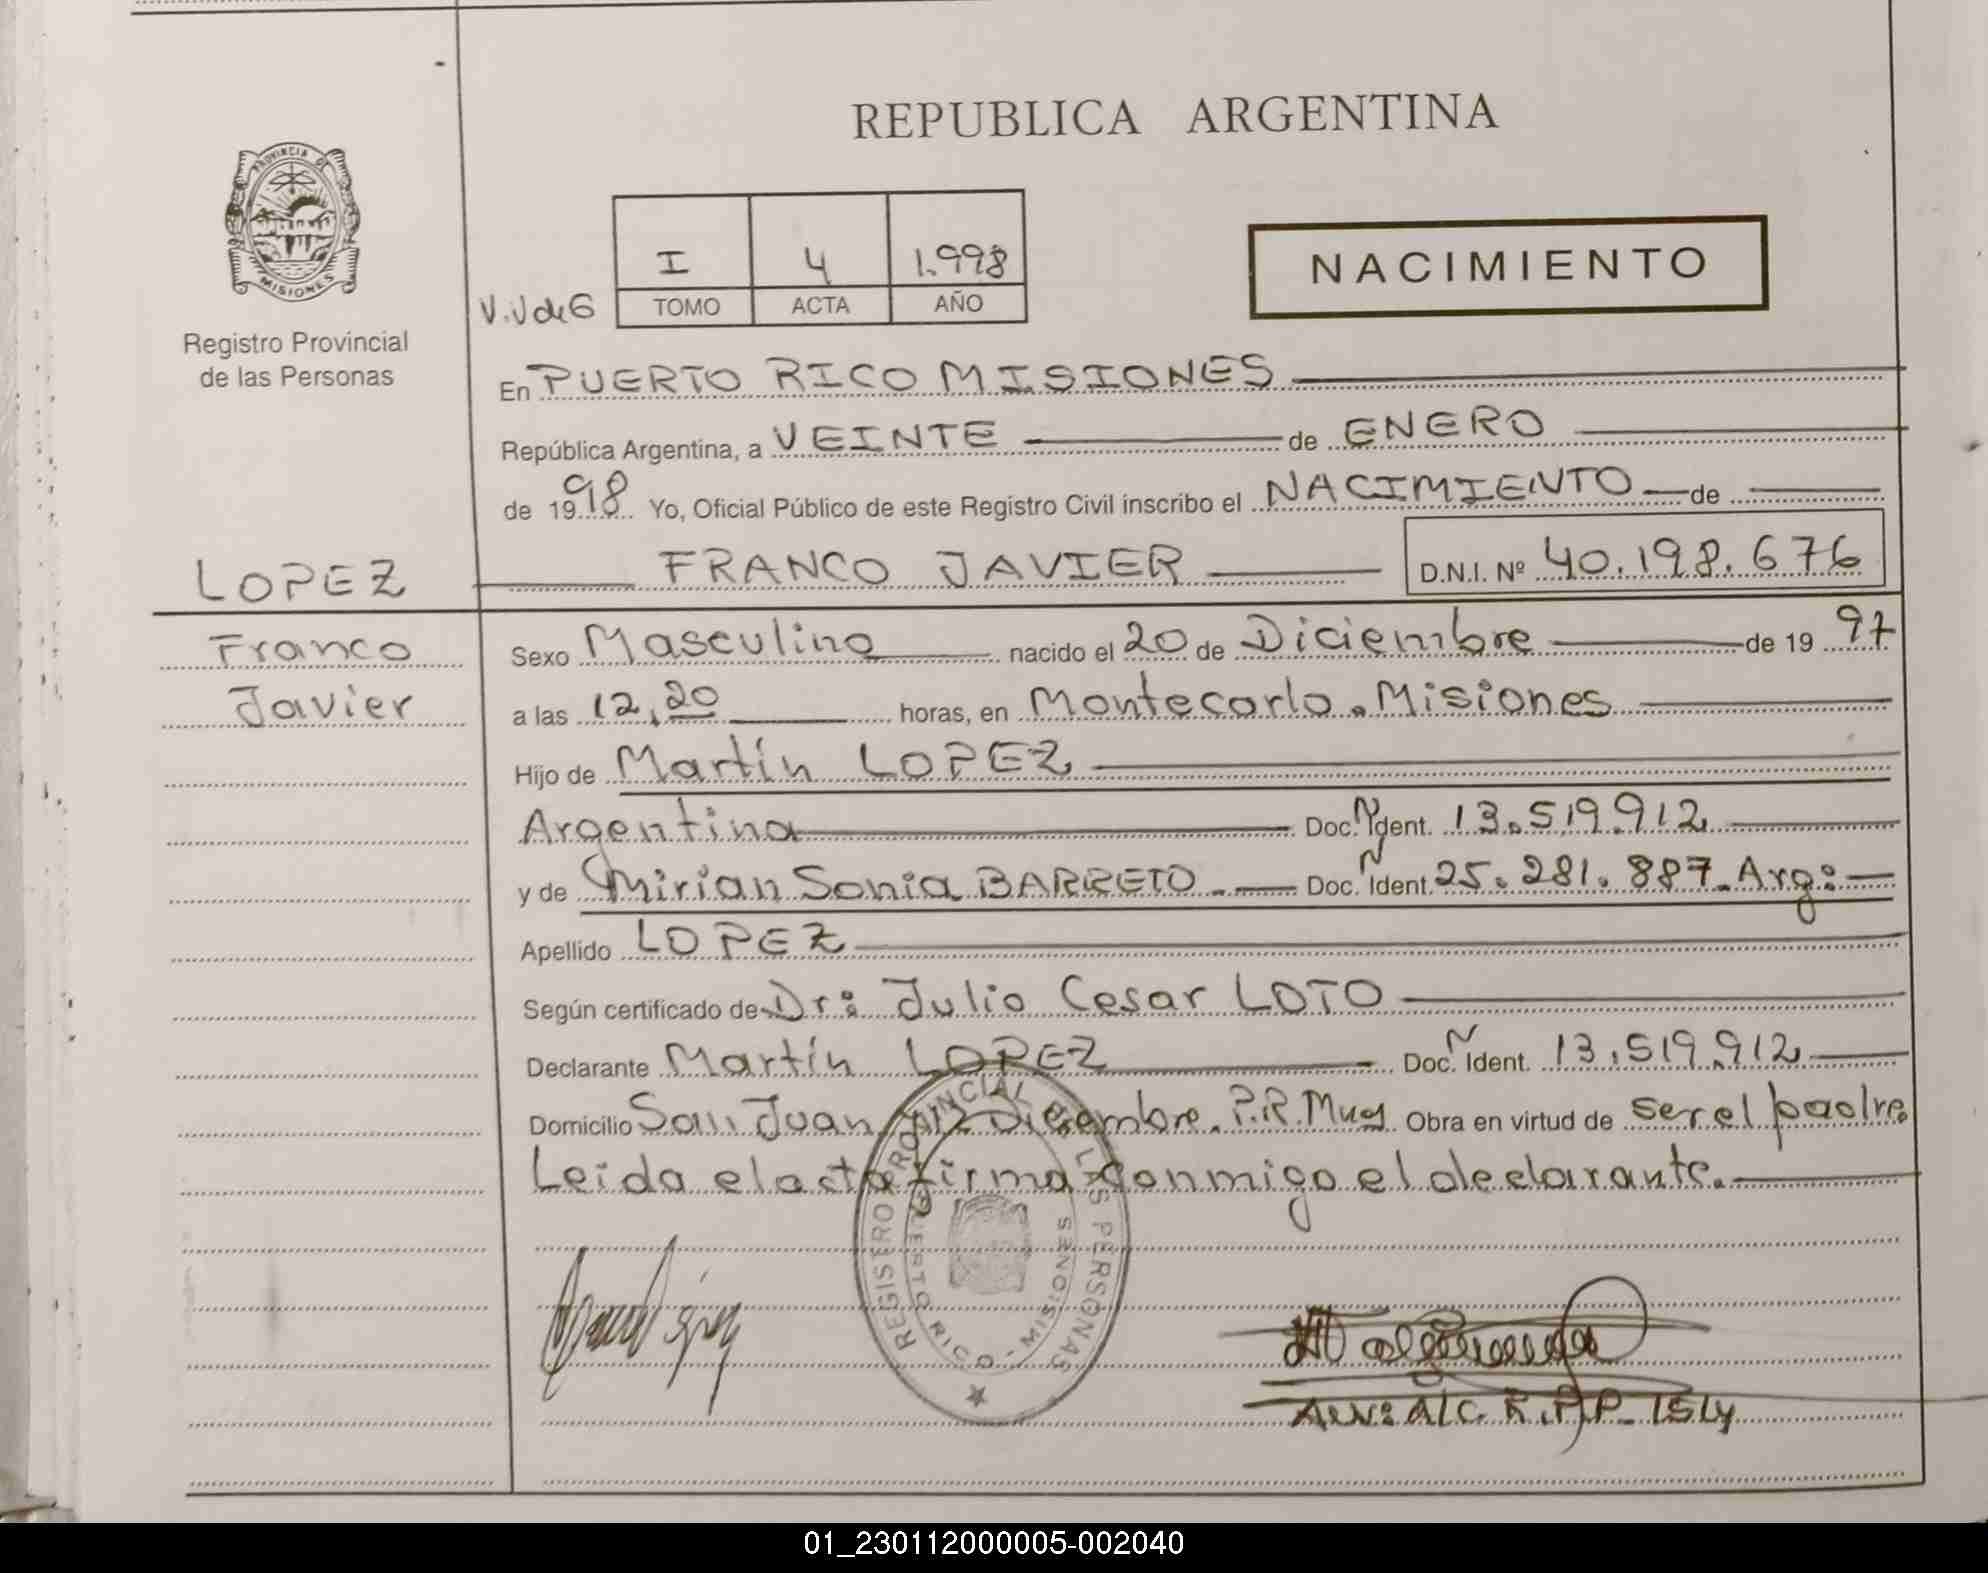 REPUBLICA ARGENTINA
PROVINCIA DE MISIONES
Registro Provincial
de las Personas
V.V de G
I 4 1.998
TOMO ACTA AÑO
NACIMIENTO
En PUERTO RICO MISIONES
República Argentina, a VEINTE de ENERO
de 1998 Yo, Oficial Público de este Registro Civil inscribo el NACIMIENTO de
LOPEZ FRANCO JAVIER D.N.I. Nº 40.198.676
Franco Sexo Masculino nacido el 20 de Diciembre de 19 97
Javier a las 12,20 horas, en Montecarlo. Misiones
Hijo de Martín LOPEZ
Argentina Doc. N Ident. 13.519.912
y de Mirian Sonia BARRETO.- Doc. N Ident. 25.281.887. Arg:
Apellido LOPEZ
Según certificado de Dr: Julio Cesar LOTO
Declarante Martín LOPEZ Doc. N Ident. 13.519.912
Domicilio San Juan y 12 Diciembre. P.R. Mnes Obra en virtud de ser el padre
Leida el acta firma conmigo el declarante.
REGISTRO PROVINCIAL DE LAS PERSONAS
PUERTO RICO - MISIONES
01_230112000005-002040